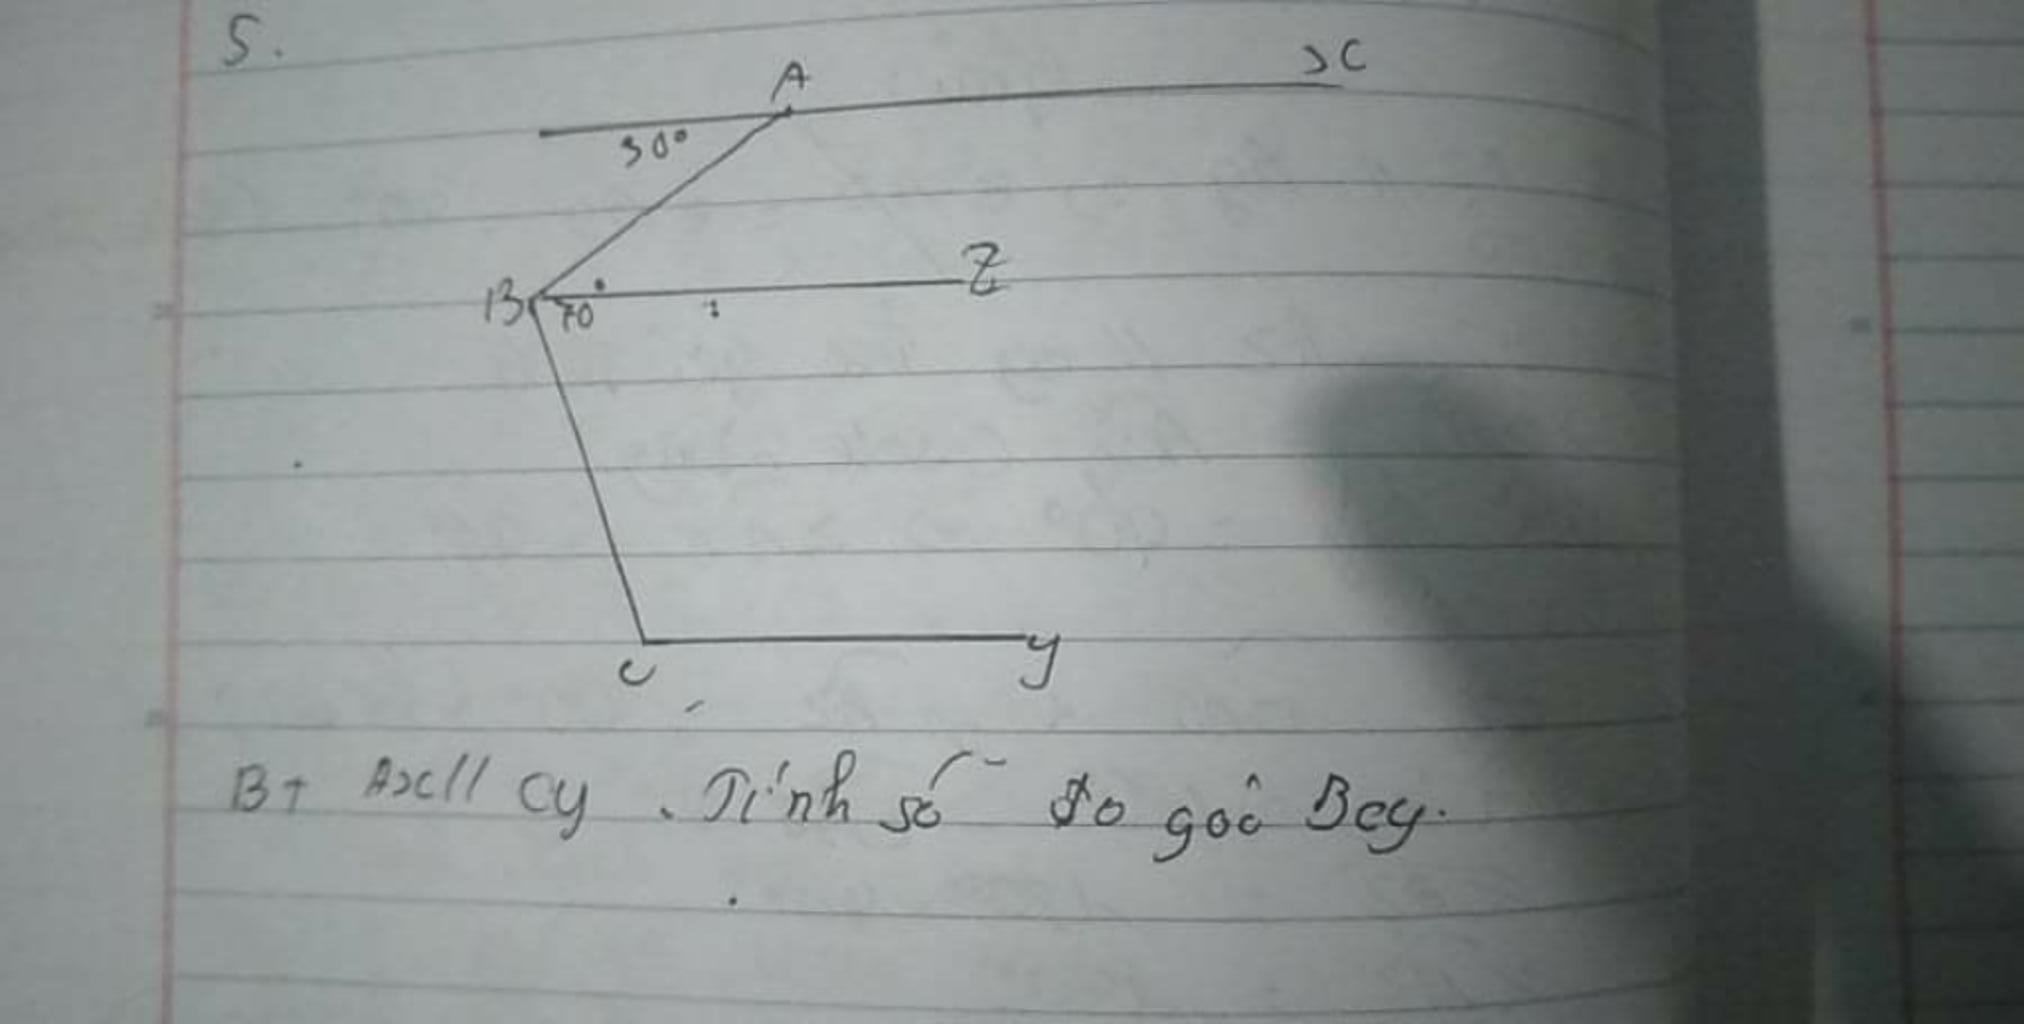 5.
A x
30°
B 70° z
C y
BT Ax // Cy . Tính số đo goô Bcy.